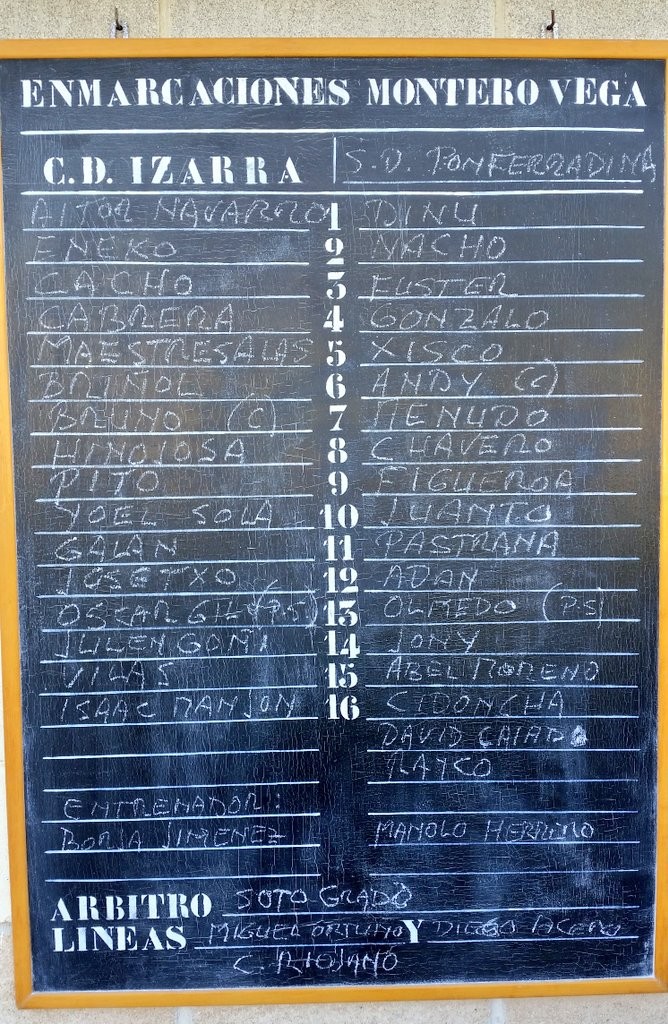 ENMARCACIONES MONTERO VEGA
C.D. IZARRA S.D. PONFERRADINA
AITOR NAVARRO 1 DINU
ENEKO 2 NACHO
CACHO 3 EUSTER
CABRERA 4 GONZALO
MAESTRESALAS 5 XISCO
BRIÑOL 6 ANDY (C)
BRUNO (C) 7 MENUDO
HINOJOSA 8 CHAVERO
PITO 9 FIGUEROA
YOEL SOLA 10 JUANTO
GALAN 11 PASTRANA
JOSETXO 12 ADAN
OSCAR GIL (P.S) 13 OLMEDO (P.S)
JULEN GOÑI 14 JONY
VILAS 15 ABEL MORENO
ISAAC MANJON 16 CIDONCHA
DAVID CAIADO
RAYCO
ENTRENADOR:
BORJA JIMENEZ MANOLO HERRERO
ARBITRO SOTO GRADO
LINEAS MIGUEL ORTUÑO Y DIEGO ACERO
C. RIOJANO